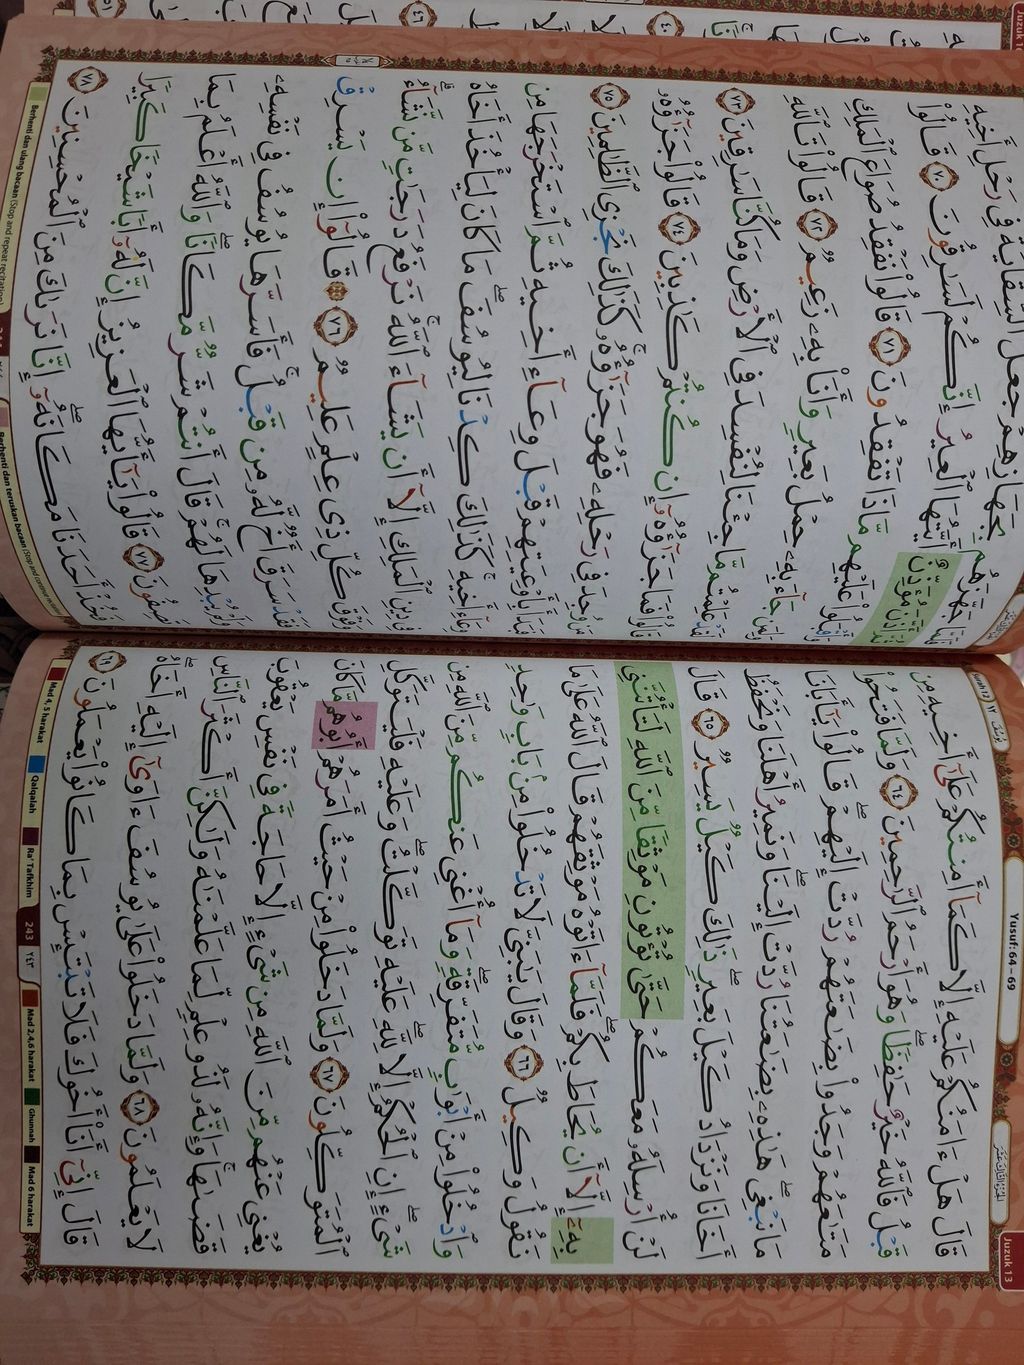 Juzuk 13
الجزء الثالث عشر
Yusuf: 64 - 69
يوسف ١٢
قَالَ هَلْ ءَامَنُكُمْ عَلَيْهِ إِلَّا كَمَآ أَمِنتُكُمْ عَلَىٰٓ أَخِيهِ مِن
قَبْلُ فَٱللَّهُ خَيْرٌ حَٰفِظًا وَهُوَ أَرْحَمُ ٱلرَّٰحِمِينَ ٦٤ وَلَمَّا فَتَحُوا۟
مَتَٰعَهُمْ وَجَدُوا۟ بِضَٰعَتَهُمْ رُدَّتْ إِلَيْهِمْ قَالُوا۟ يَٰٓأَبَانَا
مَا نَبْغِى هَٰذِهِۦ بِضَٰعَتُنَا رُدَّتْ إِلَيْنَا وَنَمِيرُ أَهْلَنَا وَنَحْفَظُ
أَخَانَا وَنَزْدَادُ كَيْلَ بَعِيرٍ ذَٰلِكَ كَيْلٌ يَسِيرٌ ٦٥ قَالَ
لَنْ أُرْسِلَهُۥ مَعَكُمْ حَتَّىٰ تُؤْتُونِ مَوْثِقًا مِّنَ ٱللَّهِ لَتَأْتُنَّنِى
بِهِۦٓ إِلَّآ أَن يُحَاطَ بِكُمْ فَلَمَّآ ءَاتَوْهُ مَوْثِقَهُمْ قَالَ ٱللَّهُ عَلَىٰ مَا
نَقُولُ وَكِيلٌ ٦٦ وَقَالَ يَٰبَنِىَّ لَا تَدْخُلُوا۟ مِنۢ بَابٍ وَٰحِدٍ
وَٱدْخُلُوا۟ مِنْ أَبْوَٰبٍ مُّتَفَرِّقَةٍ وَمَآ أُغْنِى عَنكُم مِّنَ ٱللَّهِ مِن
شَىْءٍ إِنِ ٱلْحُكْمُ إِلَّا لِلَّهِ عَلَيْهِ تَوَكَّلْتُ وَعَلَيْهِ فَلْيَتَوَكَّلِ
ٱلْمُتَوَكِّلُونَ ٦٧ وَلَمَّا دَخَلُوا۟ مِنْ حَيْثُ أَمَرَهُمْ أَبُوهُم مَّا كَانَ
يُغْنِى عَنْهُم مِّنَ ٱللَّهِ مِن شَىْءٍ إِلَّا حَاجَةً فِى نَفْسِ يَعْقُوبَ
قَضَىٰهَا وَإِنَّهُۥ لَذُو عِلْمٍ لِّمَا عَلَّمْنَٰهُ وَلَٰكِنَّ أَكْثَرَ ٱلنَّاسِ
لَا يَعْلَمُونَ ٦٨ وَلَمَّا دَخَلُوا۟ عَلَىٰ يُوسُفَ ءَاوَىٰٓ إِلَيْهِ أَخَاهُ
قَالَ إِنِّىٓ أَنَا۠ أَخُوكَ فَلَا تَبْتَئِسْ بِمَا كَانُوا۟ يَعْمَلُونَ ٦٩
Mad 4, 5 harakat
Qalqalah
Ra' Tafkhim
243 ٢٤٣
Mad 2,4,6 harakat
Ghunnah
Mad 6 harakat
فَلَمَّا جَهَّزَهُم بِجَهَازِهِمْ جَعَلَ ٱلسِّقَايَةَ فِى رَحْلِ أَخِيهِ
ثُمَّ أَذَّنَ مُؤَذِّنٌ أَيَّتُهَا ٱلْعِيرُ إِنَّكُمْ لَسَٰرِقُونَ ٧٠ قَالُوا۟
وَأَقْبَلُوا۟ عَلَيْهِم مَّاذَا تَفْقِدُونَ ٧١ قَالُوا۟ نَفْقِدُ صُوَاعَ ٱلْمَلِكِ
وَلِمَن جَآءَ بِهِۦ حِمْلُ بَعِيرٍ وَأَنَا۠ بِهِۦ زَعِيمٌ ٧٢ قَالُوا۟ تَٱللَّهِ
لَقَدْ عَلِمْتُم مَّا جِئْنَا لِنُفْسِدَ فِى ٱلْأَرْضِ وَمَا كُنَّا سَٰرِقِينَ ٧٣
قَالُوا۟ فَمَا جَزَٰٓؤُهُۥٓ إِن كُنتُمْ كَٰذِبِينَ ٧٤ قَالُوا۟ جَزَٰٓؤُهُۥ
مَن وُجِدَ فِى رَحْلِهِۦ فَهُوَ جَزَٰٓؤُهُۥ كَذَٰلِكَ نَجْزِى ٱلظَّٰلِمِينَ ٧٥
فَبَدَأَ بِأَوْعِيَتِهِمْ قَبْلَ وِعَآءِ أَخِيهِ ثُمَّ ٱسْتَخْرَجَهَا مِن
وِعَآءِ أَخِيهِ كَذَٰلِكَ كِدْنَا لِيُوسُفَ مَا كَانَ لِيَأْخُذَ أَخَاهُ
فِى دِينِ ٱلْمَلِكِ إِلَّآ أَن يَشَآءَ ٱللَّهُ نَرْفَعُ دَرَجَٰتٍ مَّن نَّشَآءُ
وَفَوْقَ كُلِّ ذِى عِلْمٍ عَلِيمٌ ٧٦ ۞ قَالُوٓا۟ إِن يَسْرِقْ
فَقَدْ سَرَقَ أَخٌ لَّهُۥ مِن قَبْلُ فَأَسَرَّهَا يُوسُفُ فِى نَفْسِهِۦ
وَلَمْ يُبْدِهَا لَهُمْ قَالَ أَنتُمْ شَرٌّ مَّكَانًا وَٱللَّهُ أَعْلَمُ بِمَا
تَصِفُونَ ٧٧ قَالُوا۟ يَٰٓأَيُّهَا ٱلْعَزِيزُ إِنَّ لَهُۥٓ أَبًا شَيْخًا كَبِيرًا
فَخُذْ أَحَدَنَا مَكَانَهُۥٓ إِنَّا نَرَىٰكَ مِنَ ٱلْمُحْسِنِينَ ٧٨
Berhenti dan teruskan bacaan (Stop and continue
Berhenti dan ulang bacaan (Stop and repeat recitation)